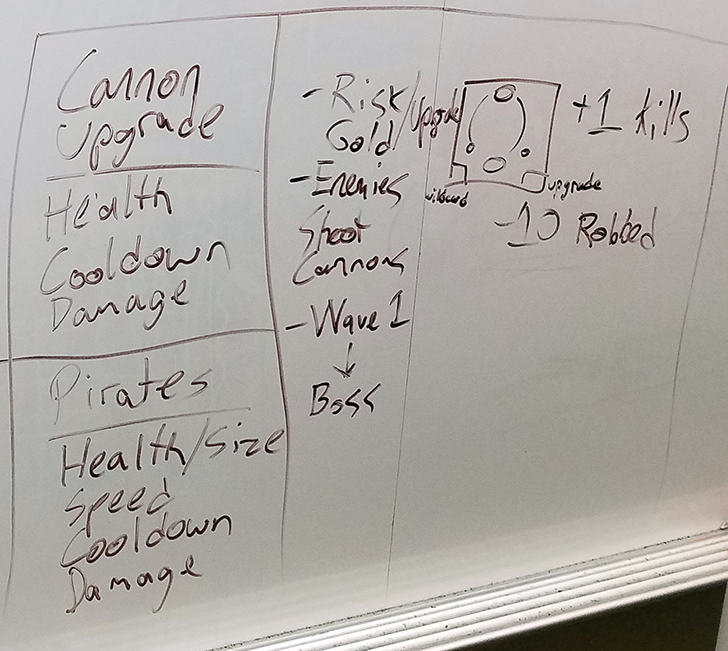 Cannon
Upgrade
Health
Cooldown
Damage
Pirates
Health/Size
Speed
Cooldown
Damage
- Risk/
Gold/Upgrade
- Enemies
Shoot
Cannons
- Wave 1
↓
Boss
wildcard
upgrade
+1 kills
-10 Robbed